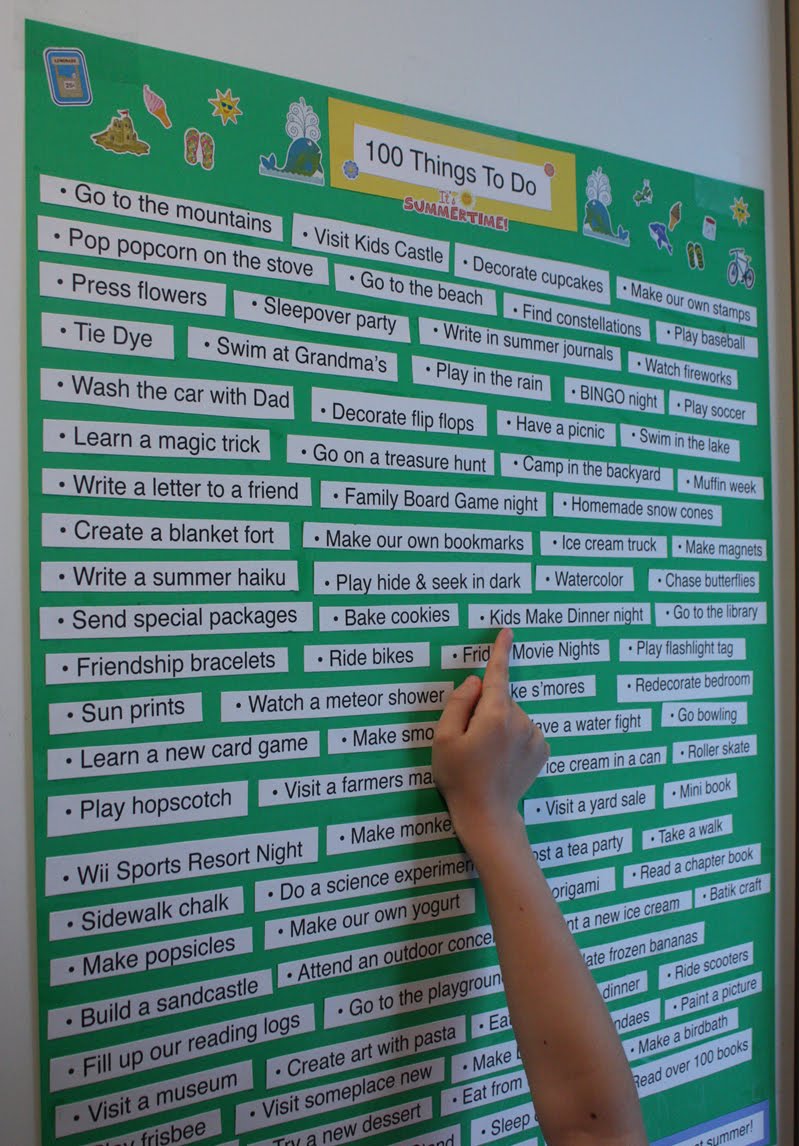 LEMONADE
100 Things To Do
It's
SUMMERTIME!
• Go to the mountains • Visit Kids Castle • Decorate cupcakes • Make our own stamps
• Pop popcorn on the stove • Go to the beach • Find constellations • Play baseball
• Press flowers • Sleepover party • Write in summer journals • Watch fireworks
• Tie Dye • Swim at Grandma's • Play in the rain • BINGO night • Play soccer
• Wash the car with Dad • Decorate flip flops • Have a picnic • Swim in the lake
• Learn a magic trick • Go on a treasure hunt • Camp in the backyard • Muffin week
• Write a letter to a friend • Family Board Game night • Homemade snow cones
• Create a blanket fort • Make our own bookmarks • Ice cream truck • Make magnets
• Write a summer haiku • Play hide & seek in dark • Watercolor • Chase butterflies
• Send special packages • Bake cookies • Kids Make Dinner night • Go to the library
• Friendship bracelets • Ride bikes • Movie Nights • Play flashlight tag
• Sun prints • Watch a meteor shower s'mores • Redecorate bedroom
• Learn a new card game • Make a water fight • Go bowling
• Play hopscotch • Visit a farmers ice cream in a can • Roller skate
• Wii Sports Resort Night • Make • Visit a yard sale • Mini book
• Sidewalk chalk • Do a science experiment a tea party • Take a walk
• Make popsicles • Make our own yogurt origami • Read a chapter book
• Build a sandcastle • Attend an outdoor a new ice cream • Batik craft
• Fill up our reading logs • Go to the playground frozen bananas
• Visit a museum • Create art with pasta • Eat dinner • Ride scooters
frisbee • Visit someplace new • Make • Paint a picture
• Try a new dessert • Eat from • Make a birdbath
• Sleep Read over 100 books
summer!